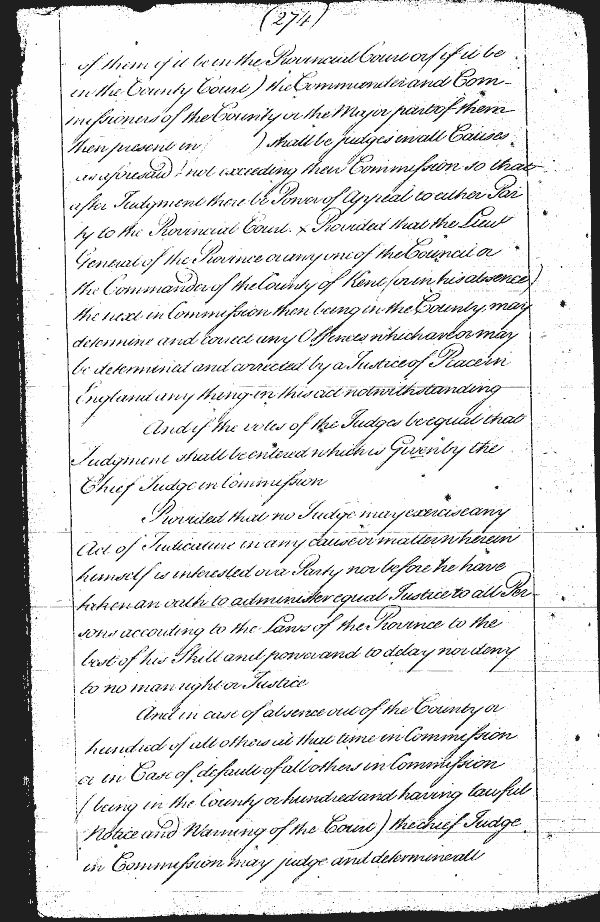 (274)
of them if it be in the Provincial Court or (if it be
in the County Court) the Commander and Com-
missioners of the County or the Major part of them
then present in ) shall be judges in all Causes
as aforesaid not exceeding their Commission so that
after Judgment there be Power of Appeal to either Par
ty to the Provincial Court. x Provided that the Lieut
General of the Province or any one of the Council or
the Commander of the County of Kent (or in his absence)
the next in Commission then being in the County may
determine and correct any Offences which are or may
be determined and corrected by a Justice of Peace in
England any thing in this act notwithstanding
And if the votes of the Judges be equal that
Judgment shall be entered which is Given by the
Chief Judge in Commission
Provided that no Judge may exercise any
Act of Judicature in any cause or matter wherein
himself is interested or a Party nor before he have
taken an oath to administer equal Justice to all Per-
sons according to the Laws of the Province to the
best of his Skill and power and to delay nor deny
to no man right or Justice
And in case of absence out of the County or
hundred of all others at that time in Commission
or in Case of default of all others in Commission
(being in the County or hundred and having lawful
Notice and Warning of the Court) the chief Judge
in Commission may judge and determine all